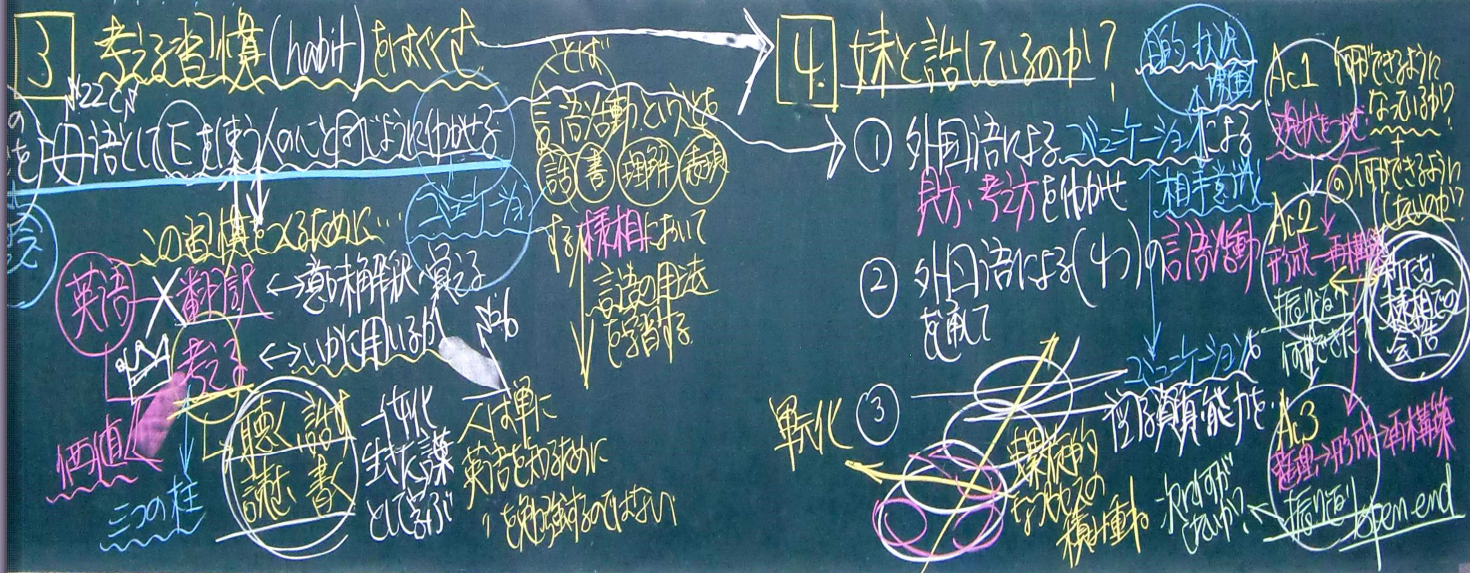 3 考える習慣(habit)をはぐくむ
M22 C.N
母語としてEを使う人のごと同じように仂かせる
この習慣をつくるために…
英語 × 翻訳 ↔ 意味解釈 覚える
考える ↔ いかに用いるか
価値
三つの柱
聴く 話す
読む 書く
一体化
生きた課
として学ぶ
人は単に
英語を知るために
を勉強するのではない
ことば
言語活動というとも
話 書 理解 表現
コミュニケーション
する 様相において
言語の用法
を学習する
4. 妹と話しているのか?
目的 状況
場面
① 外国語によるコミュニケーションによる
見方・考え方を仂かせ
相手意識
② 外国語による(4つ)の言語活動
を通して
③
コミュニケーションを
図る資質・能力を
転化
課題的
なプロセスの
積み重ね
次は何が
Ac1 何ができるように
なっているか?
現状をつかむ
+
何ができるように
したいのか?
Ac2
形成→再構築
振り返り
何ができた
新たな
様相での
会話
Ac3
整理→形成→再構築
振り返り open-end